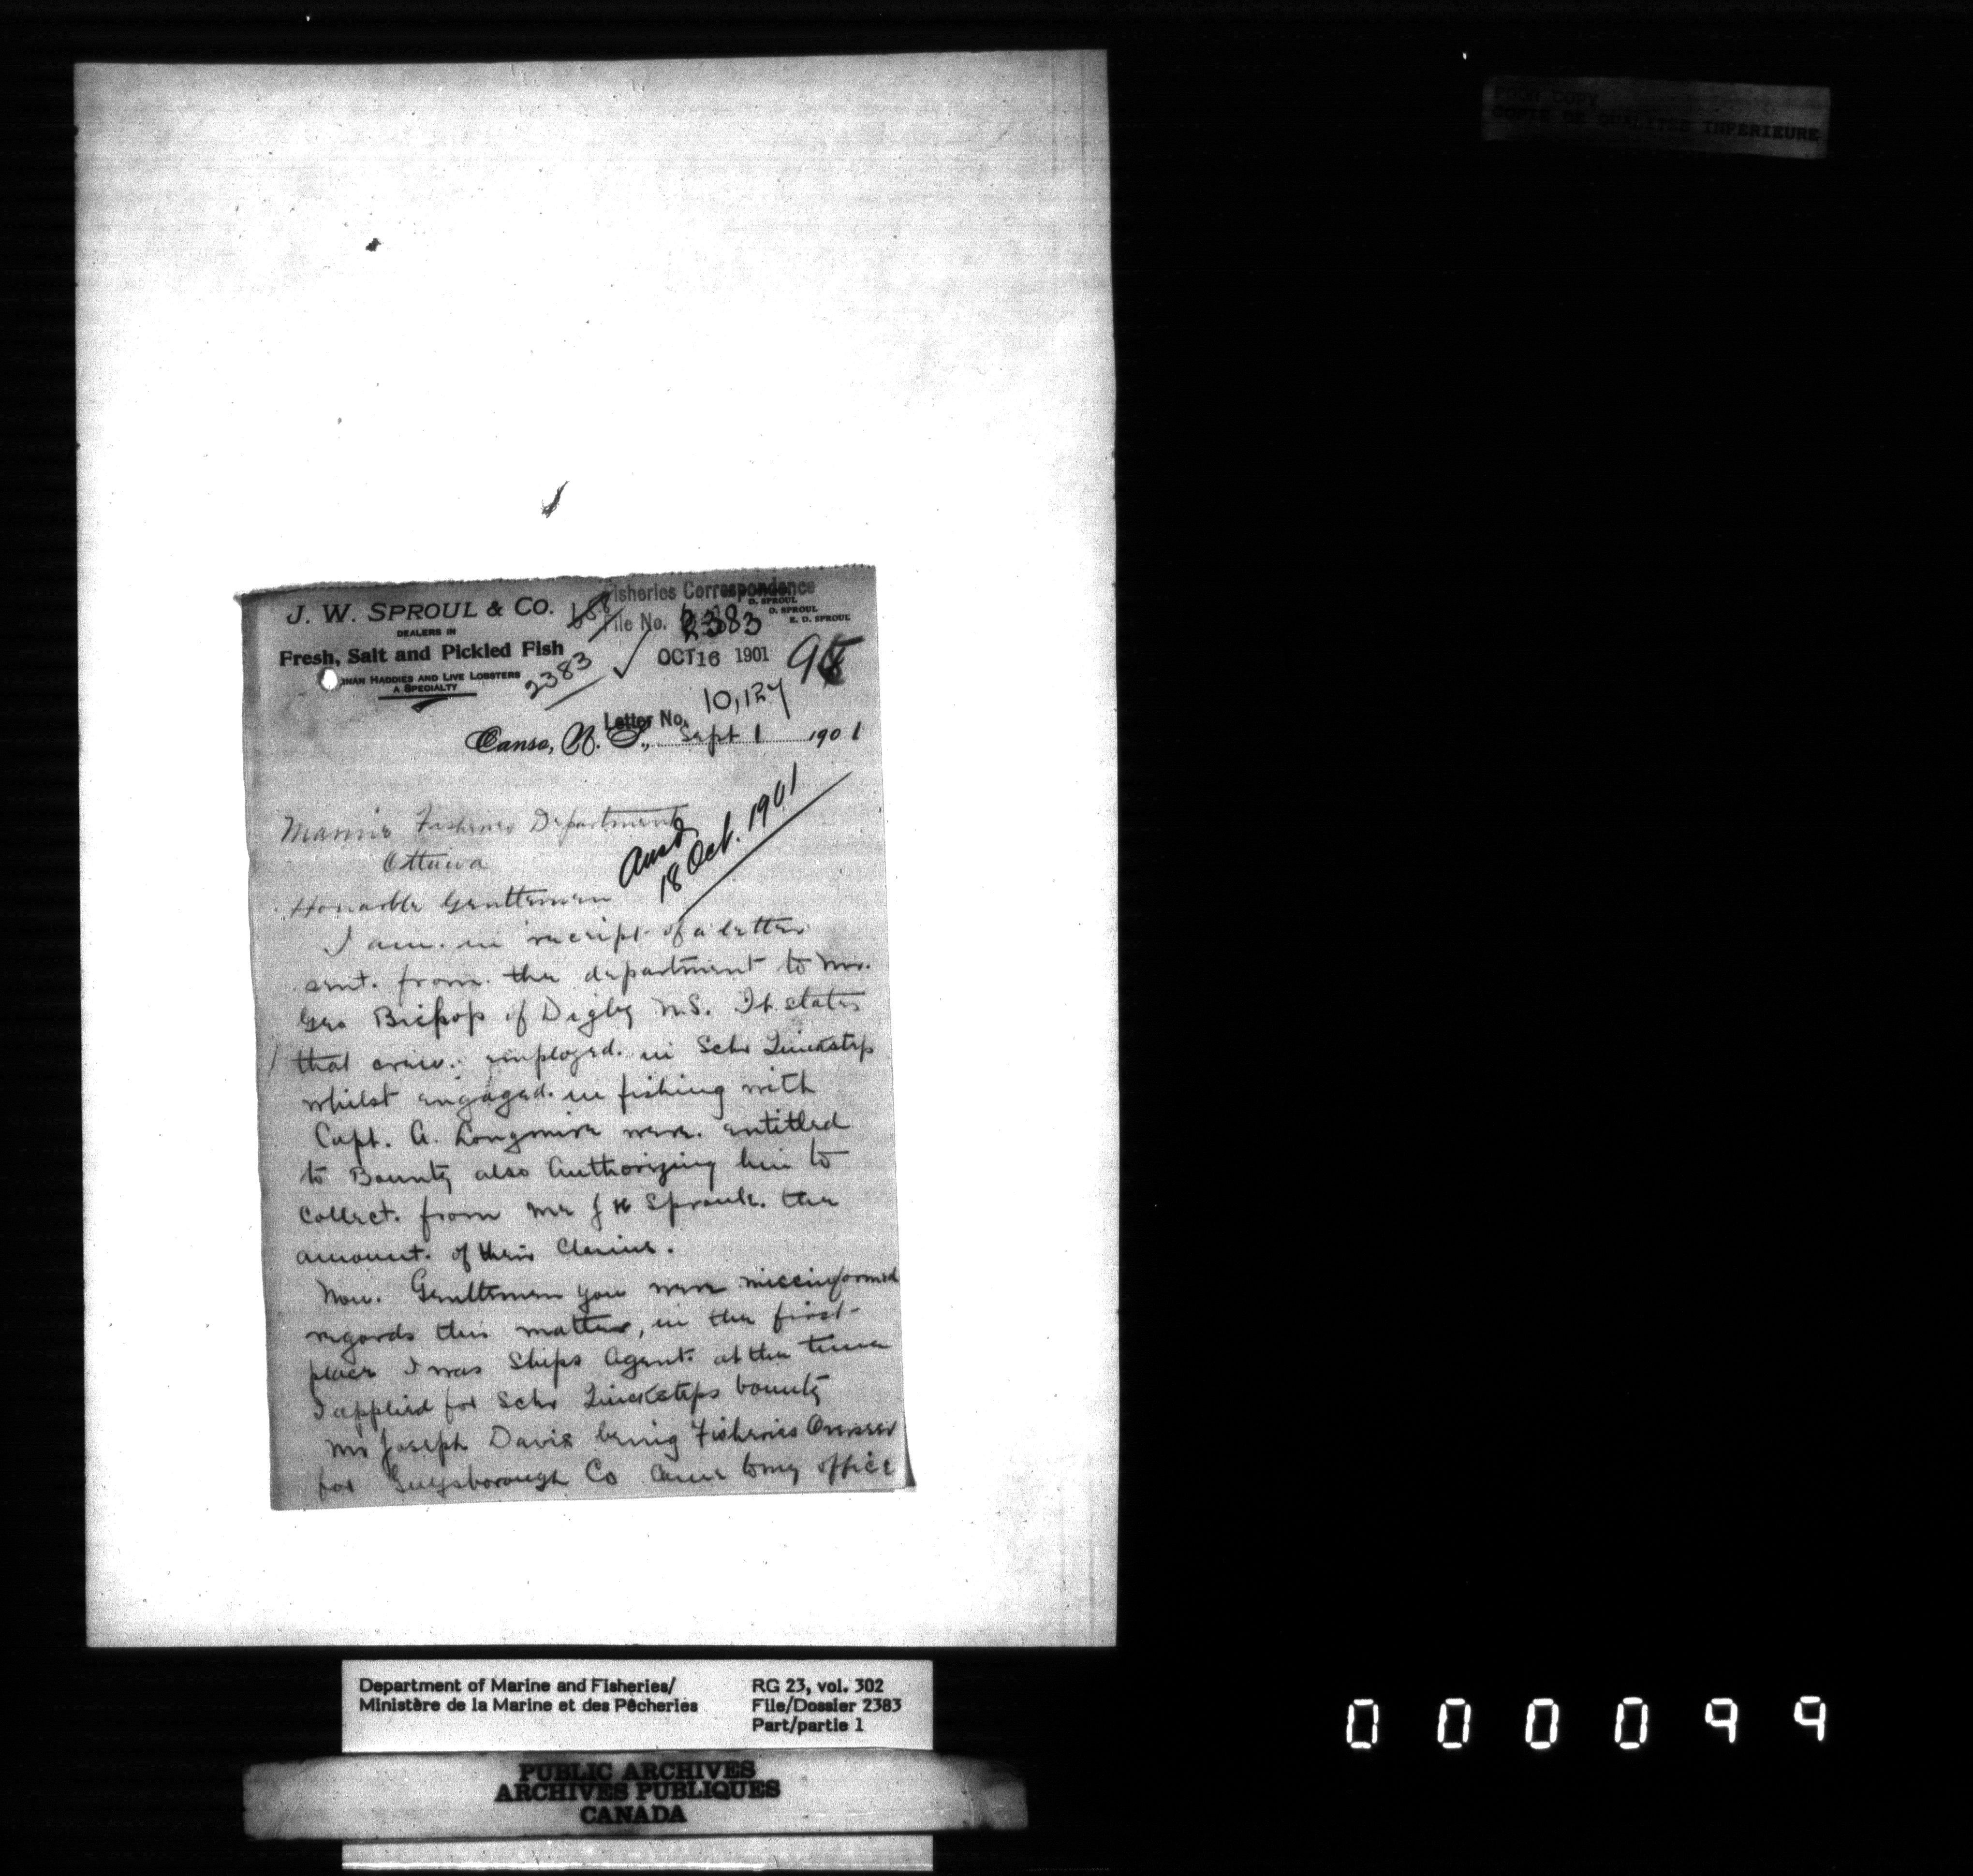 POOR COPY
COPIE DE QUALITEE INFERIEURE
J. W. SPROUL & CO.
DEALERS IN
Fresh, Salt and Pickled Fish
INAN HADDIES AND LIVE LOBSTERS
A SPECIALTY
Fisheries Correspondence
File No. 2383
D. SPROUL
O. SPROUL
E. D. SPROUL
OCT 16 1901
2383
Letter No. 10,127
Canso, N. S., Sept 1 1901
Ansd
18 Oct. 1901
Marine Fisheries Department
Ottawa
Honarble Genttemen
I am in receipt of a letter
sent from the department to Mr.
Geo Bishop of Digby N.S. It states
that crew employed in Schr Quickstep
whilst engaged in fishing with
Capt. A. Longmire were entitled
to Bounty also Authorizing him to
Collect from Mr J H Sproule the
amount of their Claims.
Now Genttemen you were miccinformed
regards this matter, in the first
place I was Ships Agent at the time
I applied for Schr Quicksteps bounty
Mr Joseph Davis being Fisheries Overseer
for Guysborough Co Came to my office
Department of Marine and Fisheries/
Ministère de la Marine et des Pêcheries
RG 23, vol. 302
File/Dossier 2383
Part/partie 1
PUBLIC ARCHIVES
ARCHIVES PUBLIQUES
CANADA
000099